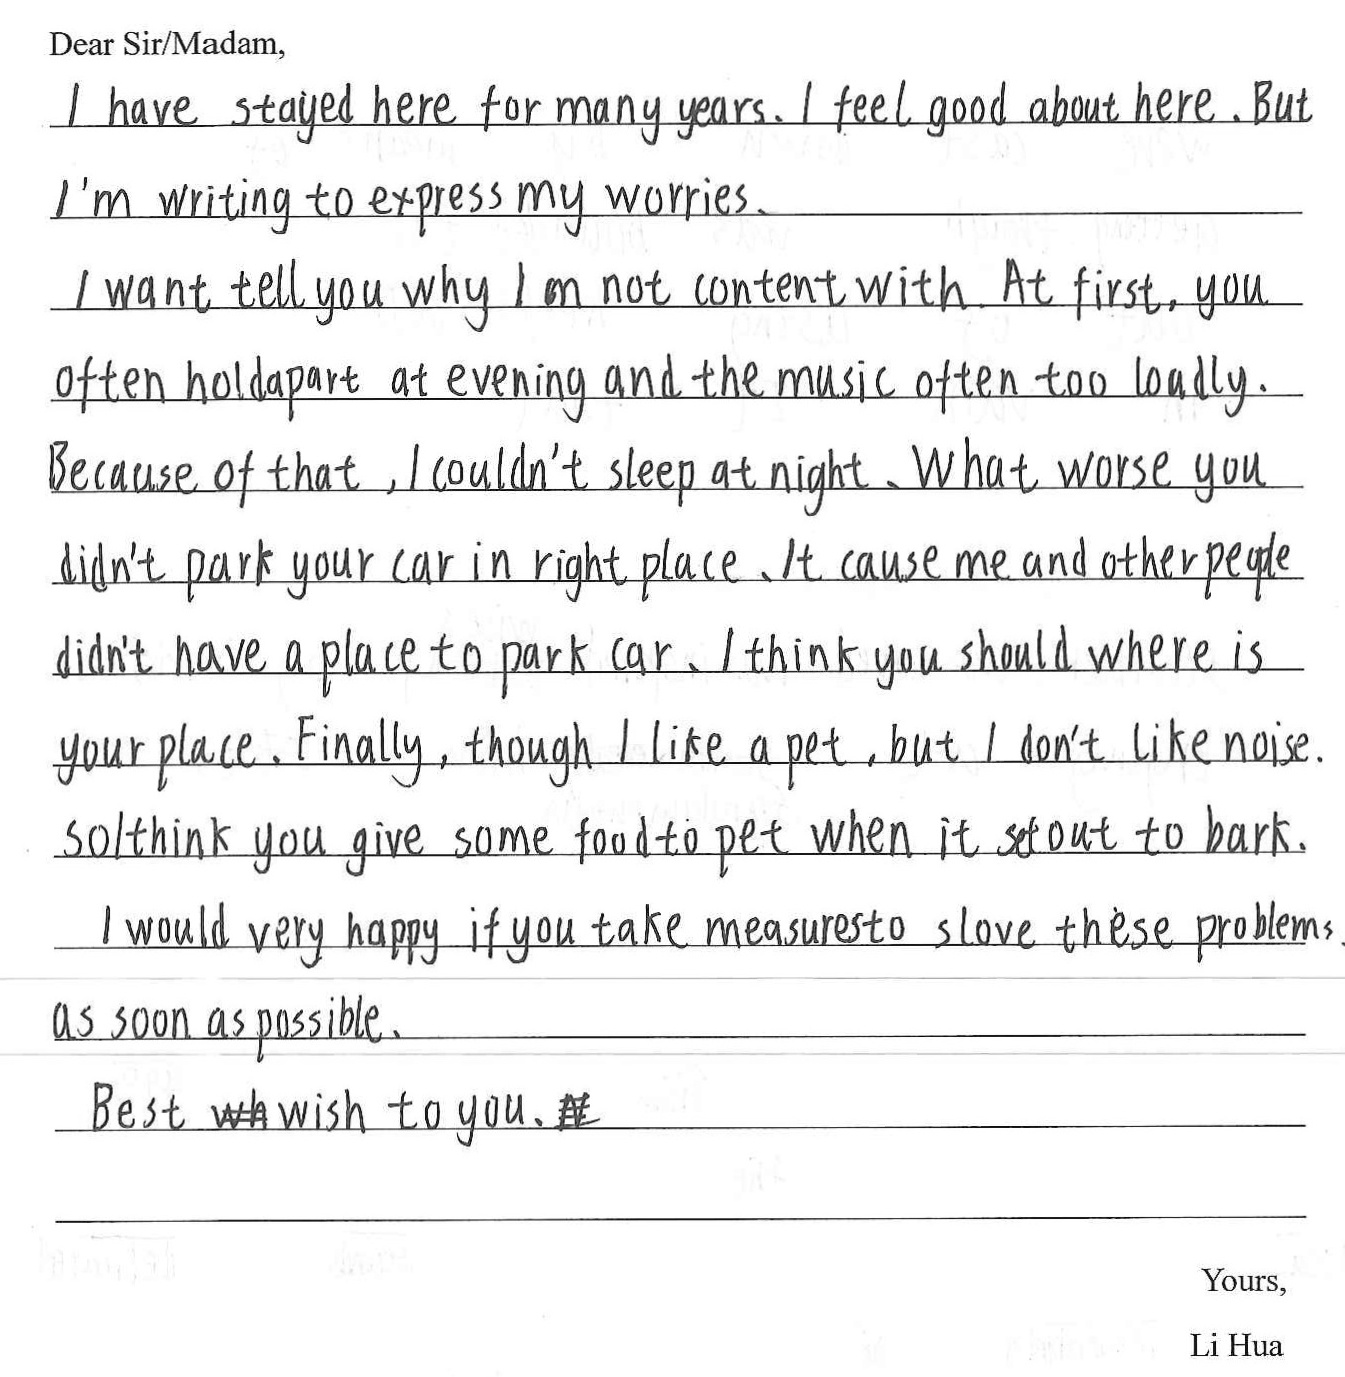 Dear Sir/Madam,
I have stayed here for many years. I feel good about here. But
I'm writing to express my worries.
I want tell you why I am not content with. At first, you
often holdapart at evening and the music often too loadly.
Because of that, I couldn't sleep at night. What worse you
didn't park your car in right place. It cause me and other people
didn't have a place to park car. I think you should where is
your place. Finally, though I like a pet, but I don't like noise.
so I think you give some food to pet when it set out to bark.
I would very happy if you take measures to slove these problems.
as soon as possible.
Best wish to you.
Yours,
Li Hua